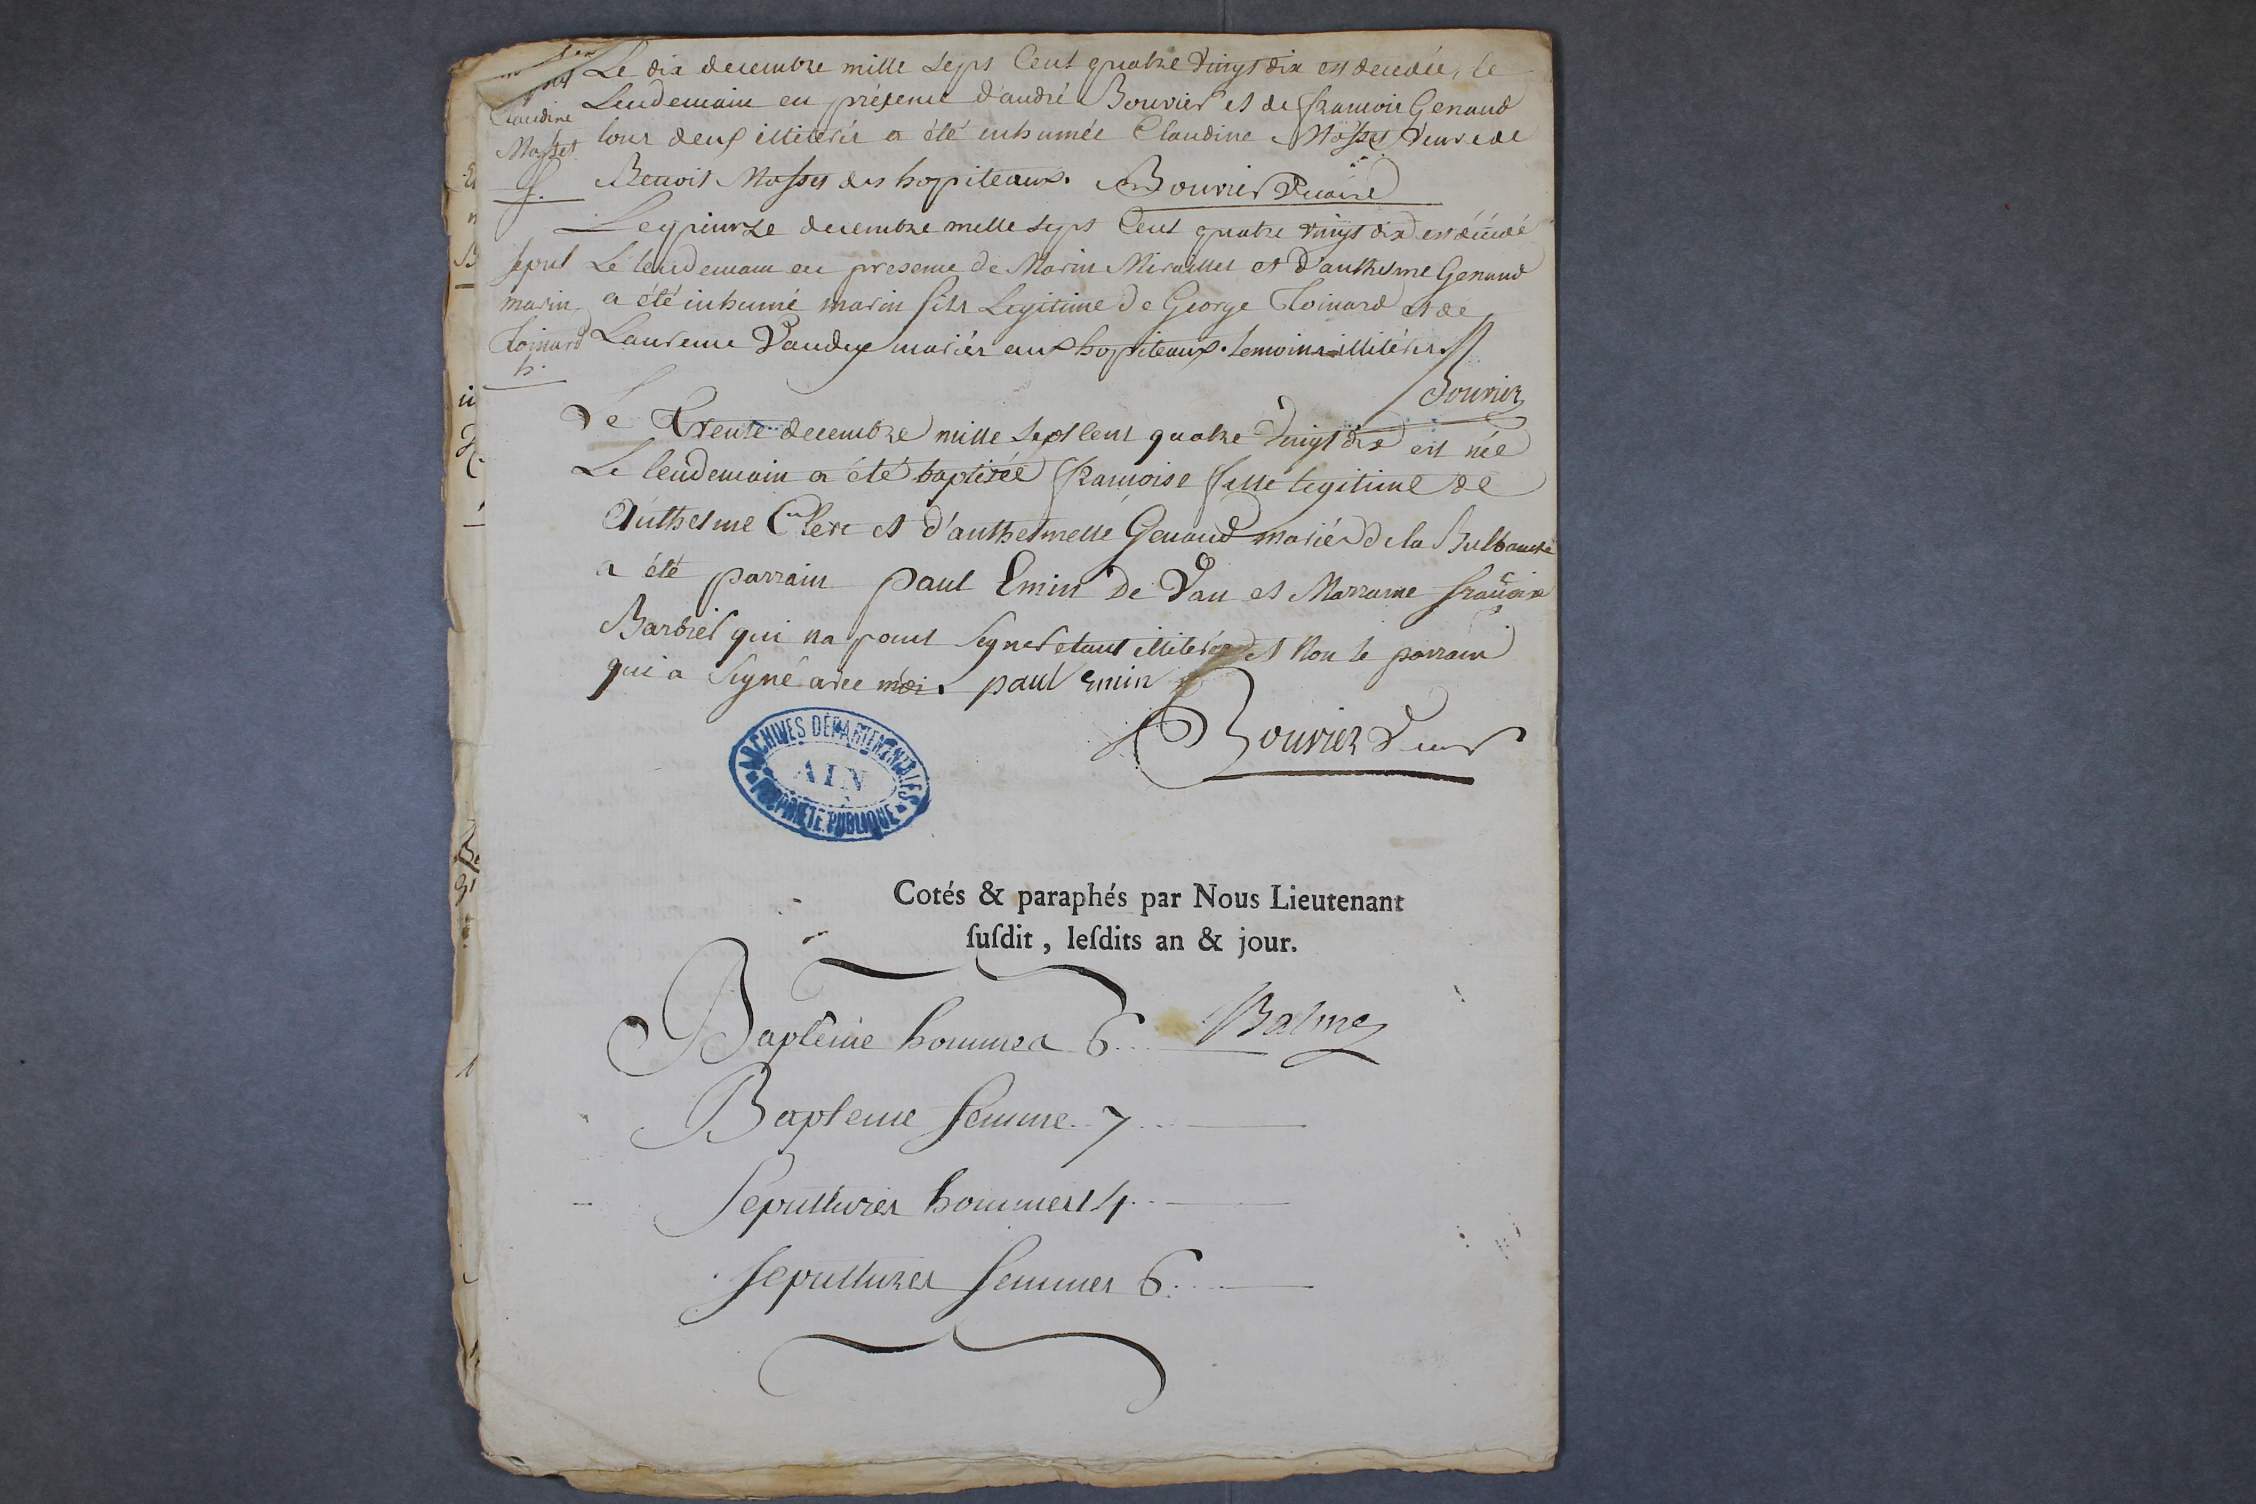 Le dix decembre mille Sept Cent quatre vingt dix est decedée, le
Claudine
Lendemain en présence d'andré Bouvier et de francois Genaud
Mosset
tous deux illiterés a été inhumée Claudine Mosset veuve de
f.
Benoit Mosset des hopiteaux. Bouvier vicaire
Le quinze decembre mille sept Cent quatre vingt dix est décédé
sepul
Le lendemain en presence de Marin Miraillet et d'anthelme Genaud
marin
a été inhumé marin fils Legitime de George Toinard et de
Toinard
Laurence Vaudey mariés aux hopiteaux. temoins illitérés
h.
Bouvier
Le Trente decembre mille Sept Cent quatre vingt dix est née
Le lendemain a été baptisée francoise fille legitime de
Anthelme Clerc et d'anthelmette Genaud mariés de la
a été parrain paul Emin De Vau et Marraine francoise
Barbier qui na point Signer etant illiterée et Non le parrain
qui a Signé avec moi. paul Emin
Bouvier
ARCHIVES DÉPARTEMENTALES
AIN
PROPRIÉTÉ PUBLIQUE
Cotés & paraphés par Nous Lieutenant
ſuſdit , leſdits an & jour.
Baptême hommes 6
Balme
Bapteme femme 7
Sepultures hommes 14
sepultures femmes 6